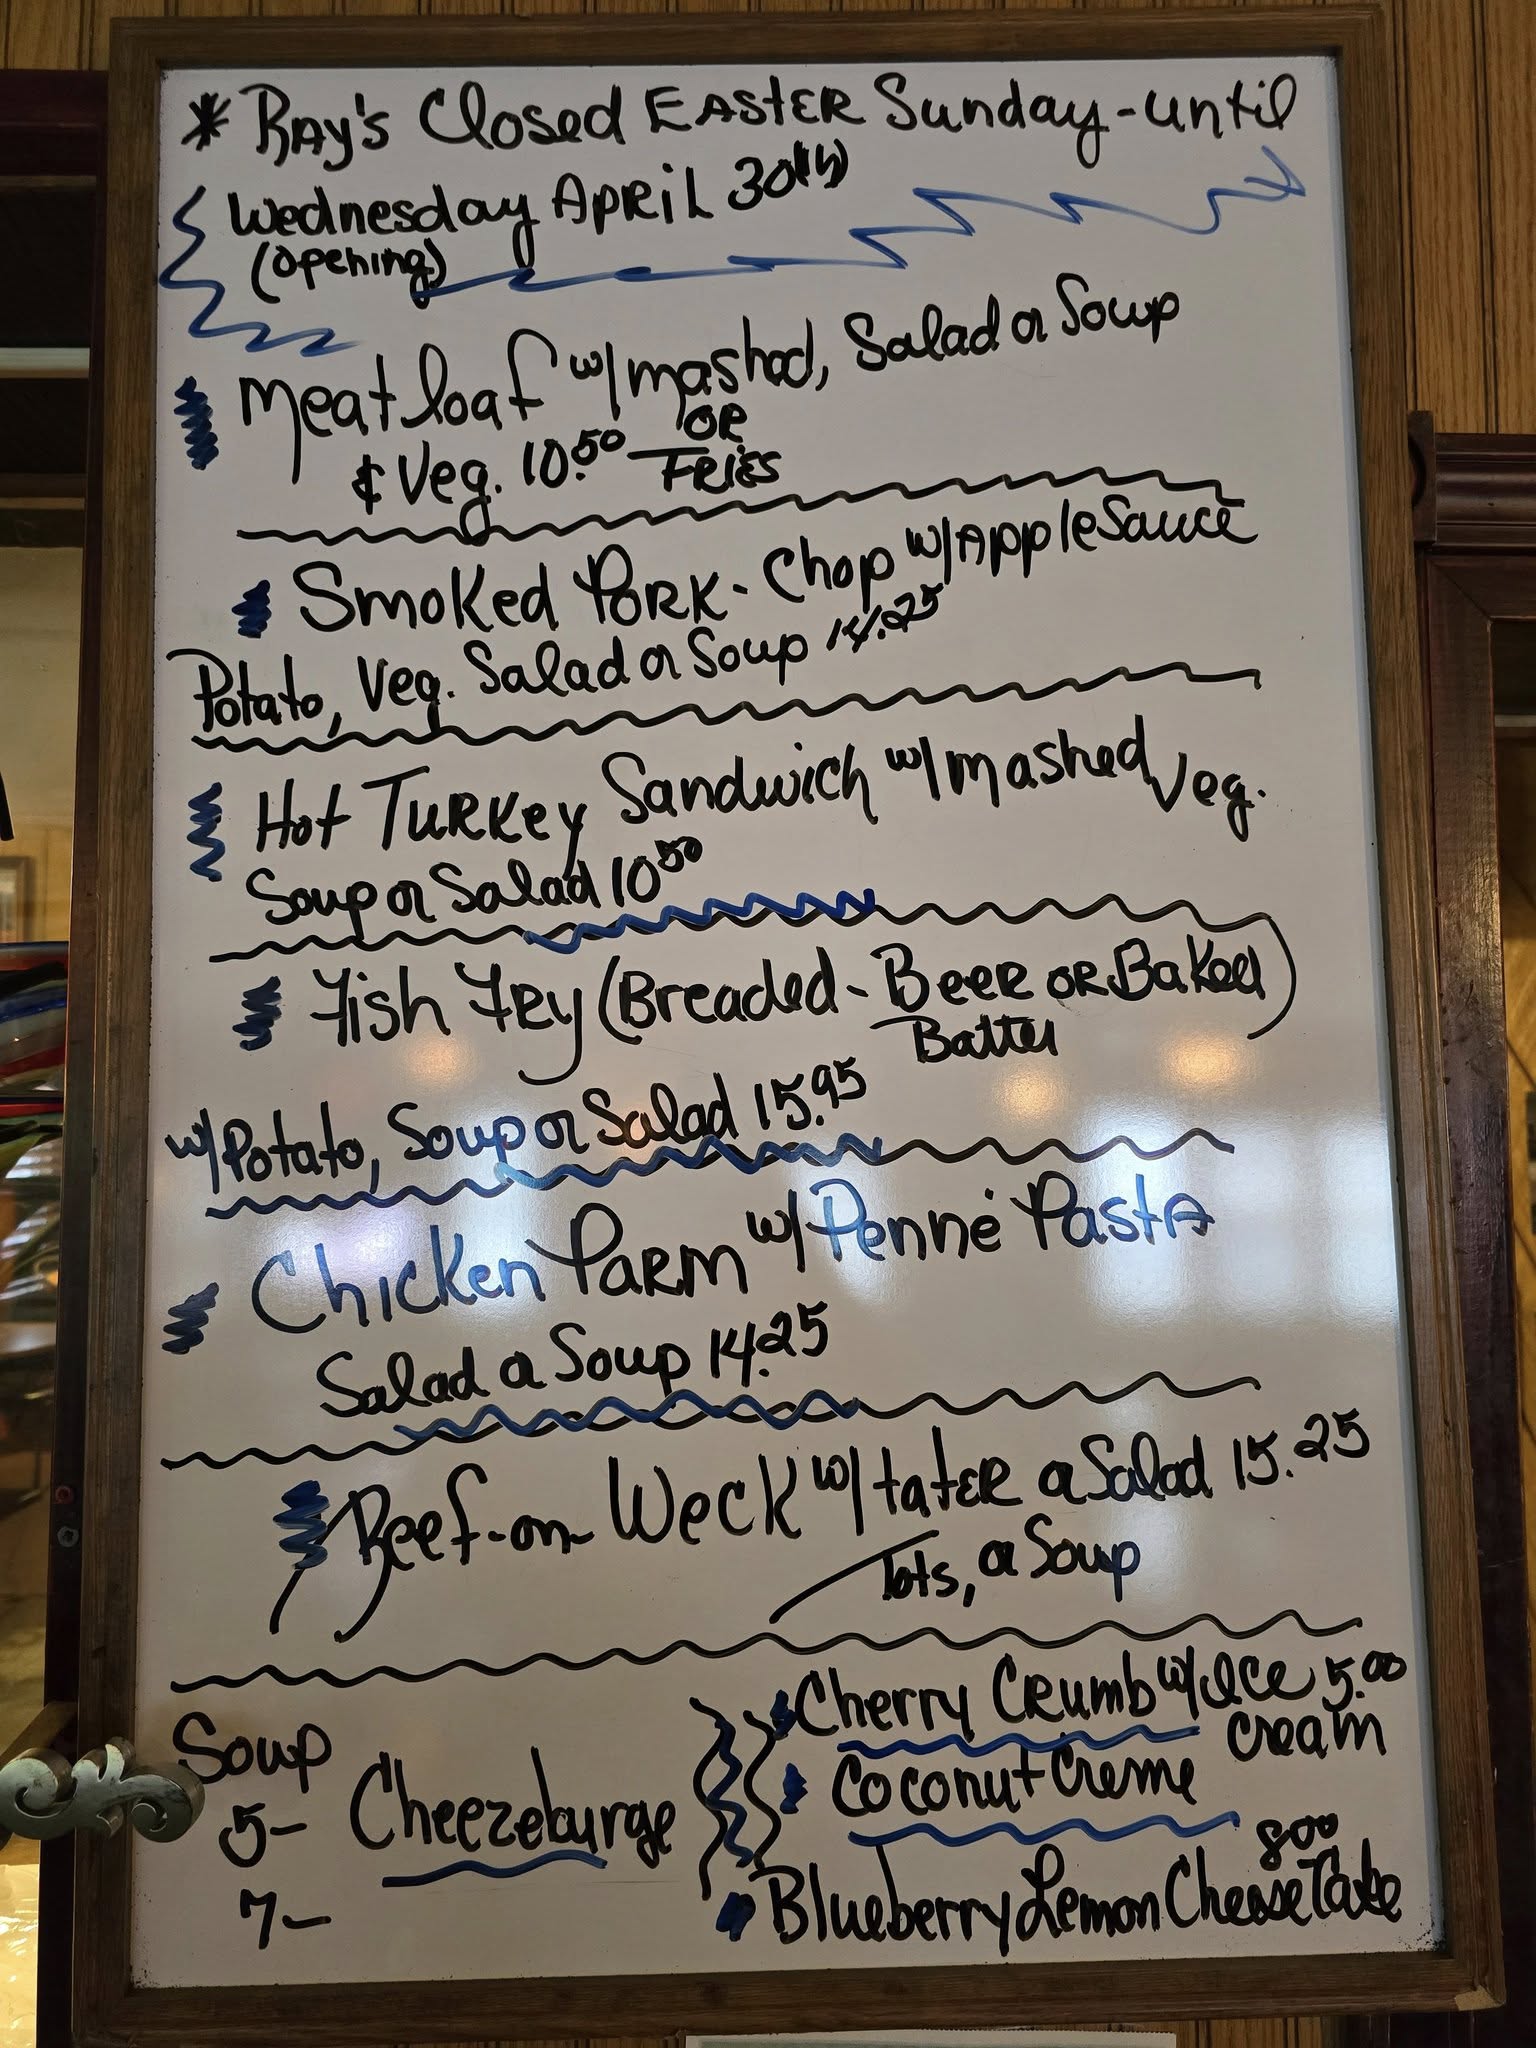 * Ray's Closed EASTER Sunday - until
Wednesday APRIL 30th)
(opening)
Meatloaf w/ mashed, Salad or Soup
& Veg. 10.50 OR FRIES
Smoked PORK - Chop w/ Apple Sauce
Potato, Veg. Salad or Soup 14.25
Hot TURKey Sandwich w/ mashed Veg.
Soup or Salad 10 50
Fish FRy (Breaded - BeeR OR BaKed)
Batter
w/ Potato, Soup or Salad 15.95
ChicKen PaRm w/ Penné PastA
Salad or Soup 14.25
Beef-on-WecK w/ tateR or Salad 15.25
tots, or Soup
Soup
5-
7-
Cheezeburge
Cherry CRumb w/ Ice 5.00
cream
Coconut Creme
8 00
Blueberry Lemon Cheese Cake